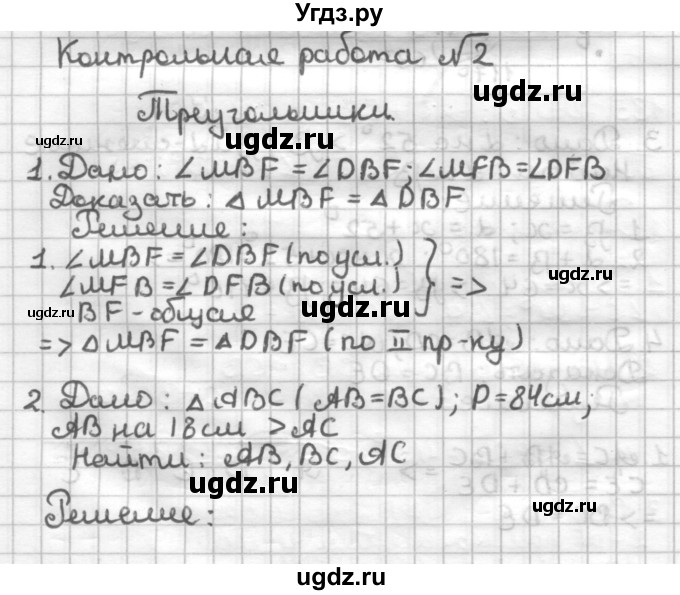 Угдз.ру
Контрольная работа №2
ugdz.ru
Треугольники.
ugdz.ru ugdz.ru
1. Дано: ∠MBF = ∠DBF; ∠MFB = ∠DFB
Доказать: △ MBF = △ DBF
ugdz.ru
Решение:
1. ∠MBF = ∠DBF (по усл.)
∠MFB = ∠DFB (по усл.) } =>
ugdz.ru
ugdz.ru
BF - общая
=> △ MBF = △ DBF (по II пр-ку)
ugdz.ru
2. Дано: △ ABC (AB = BC); P = 84см;
AB на 18 см > AC
Найти: AB, BC, AC
ugdz.ru ugdz.ru
Решение:
ugdz.ru